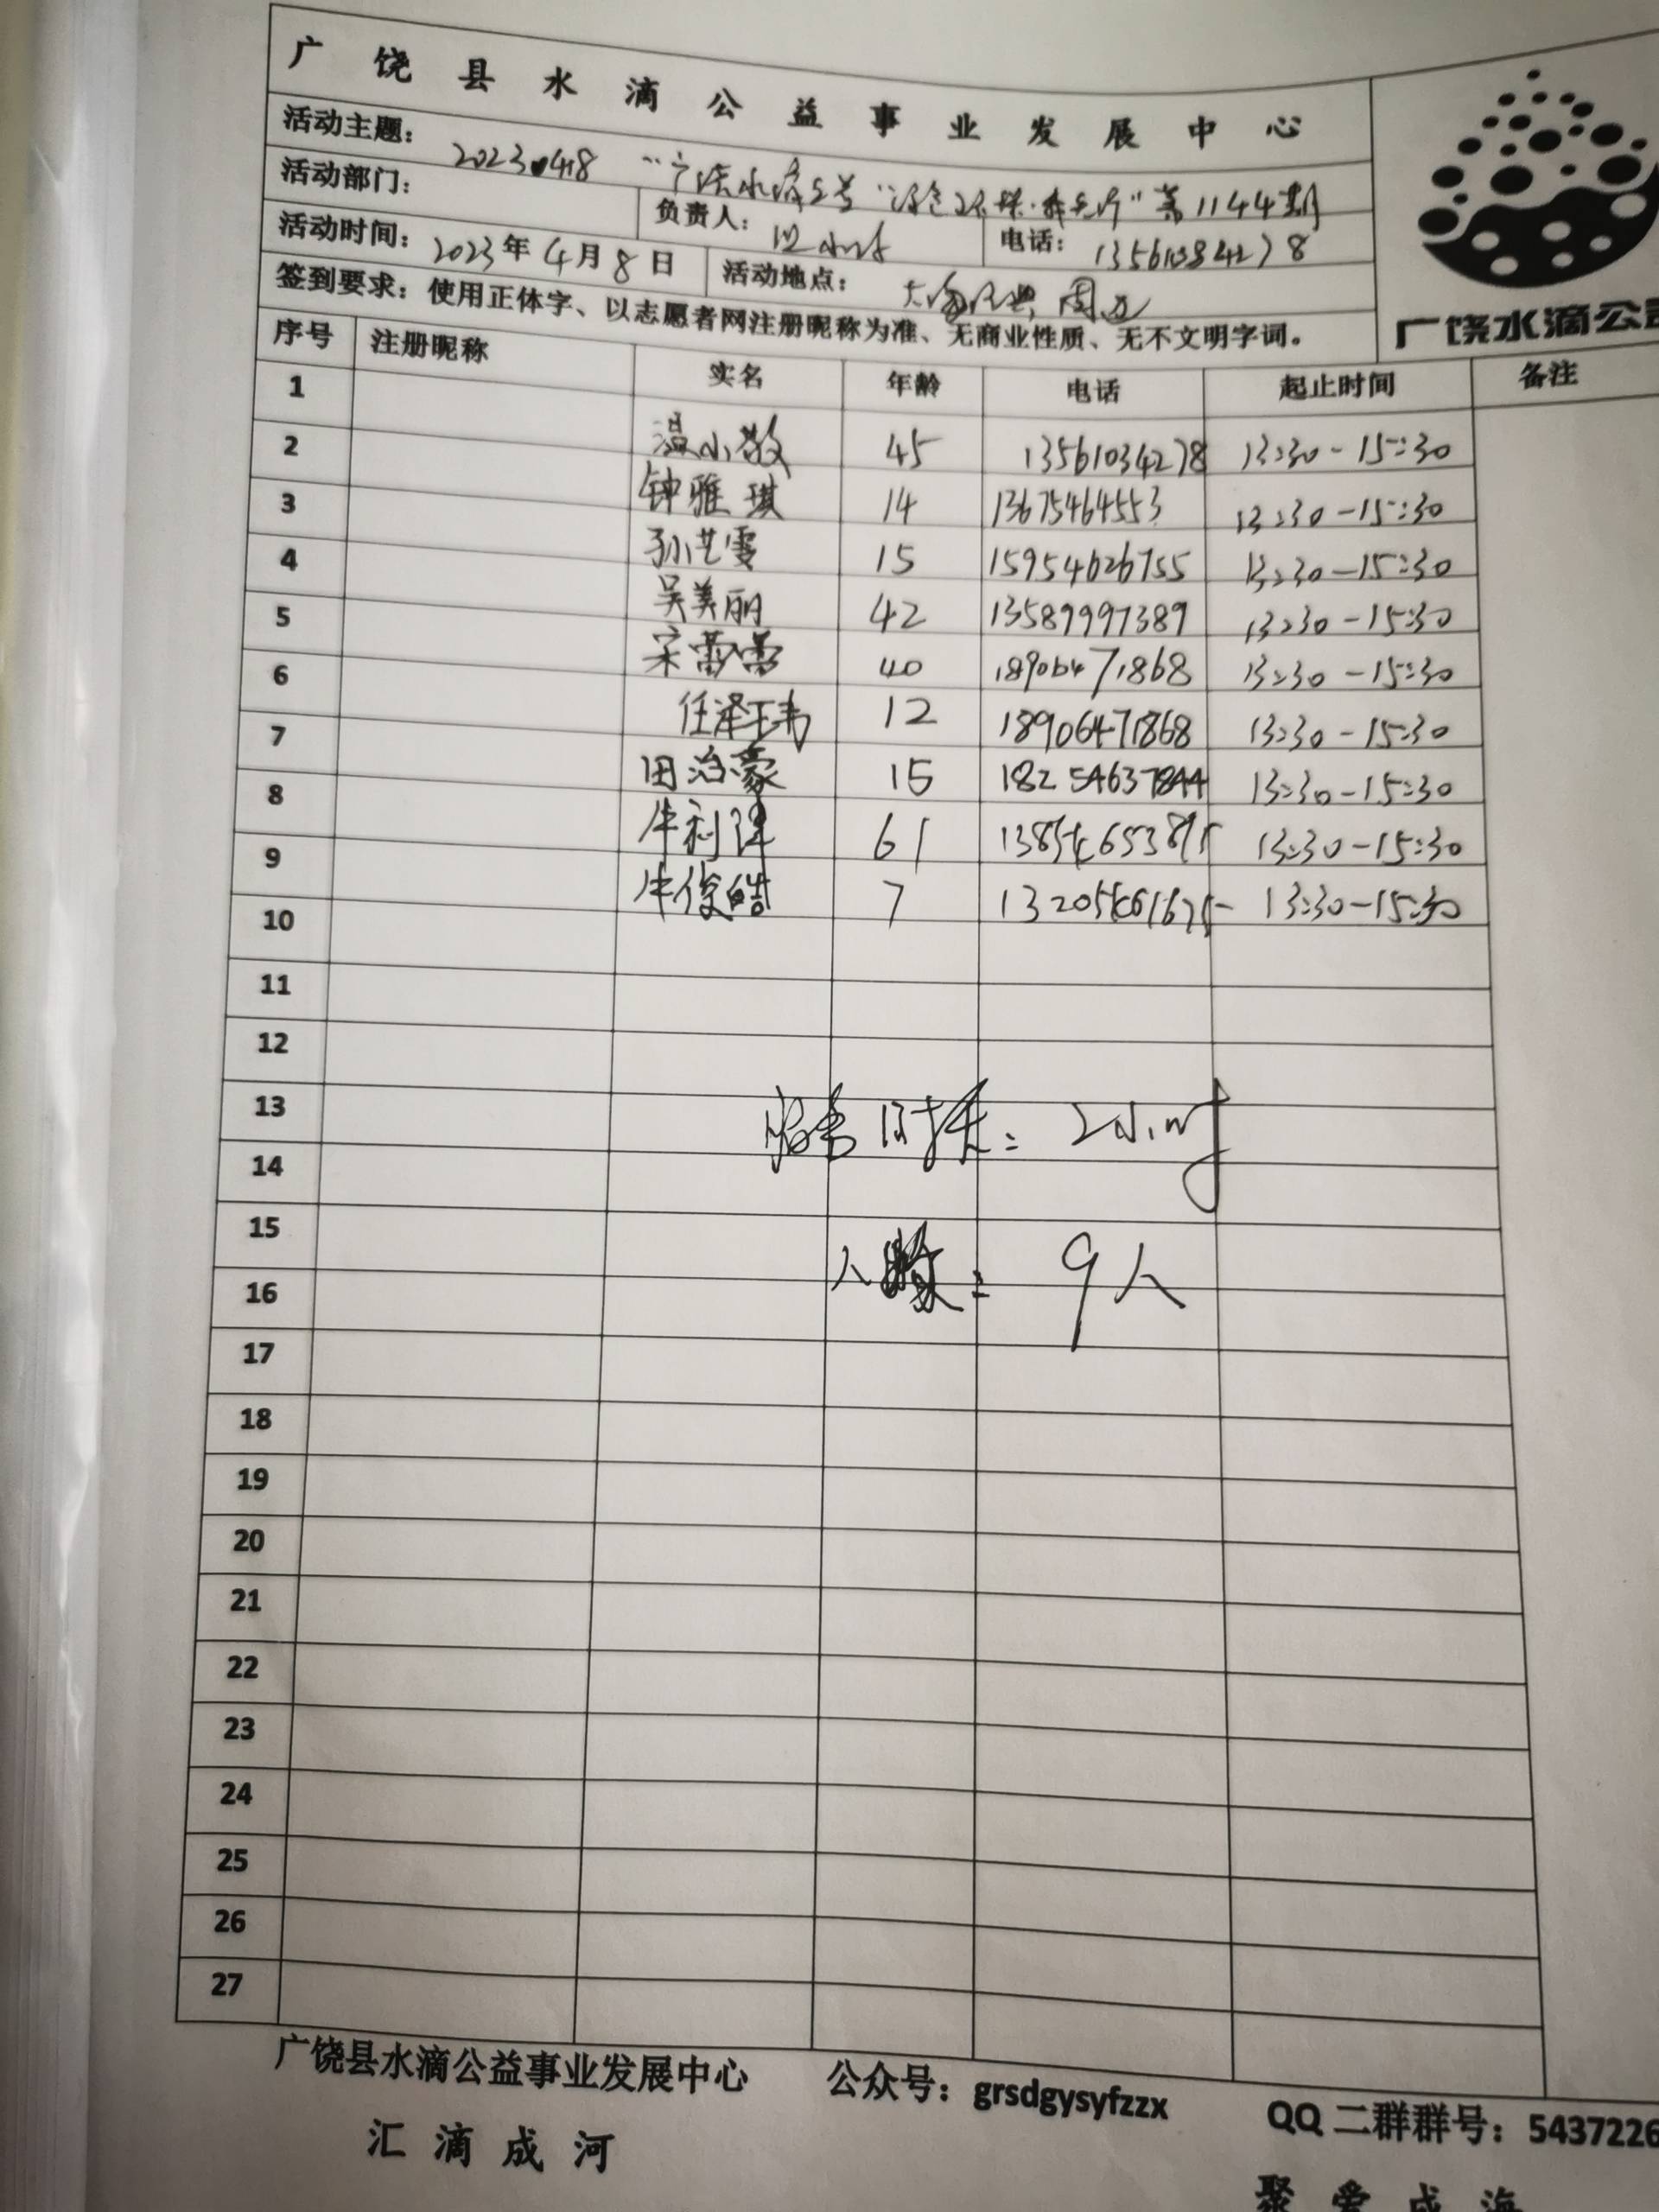 广饶县水滴公益事业发展中心
活动主题: 2023.04.8 "广饶水滴公益" 第1144期
活动部门: 负责人: 电话: 13561034278
活动时间: 2023年4月8日 活动地点: 周边
签到要求: 使用正体字、以志愿者网注册昵称为准、无商业性质、无不文明字词。
广饶水滴公
序号 注册昵称 实名 年龄 电话 起止时间 备注
1 温小敏 45 13561034278 13:30-15:30
2 钟雅琪 14 13675464553 13:30-15:30
3 孙艺雯 15 15954626755 13:30-15:30
4 吴美丽 42 13589997389 13:30-15:30
5 宋蕾蕾 40 18906471868 13:30-15:30
6 任泽玮 12 18906471868 13:30-15:30
7 田治豪 15 18254637844 13:30-15:30
8 牛利 61 13:30-15:30
9 牛俊皓 7 13:30-15:30
10
11
12
13
服务时长: 2小时
14
15
人数: 9人
16
17
18
19
20
21
22
23
24
25
26
27
广饶县水滴公益事业发展中心 公众号: grsdgysyfzzx QQ二群群号: 5437226
汇滴成河 聚爱成海